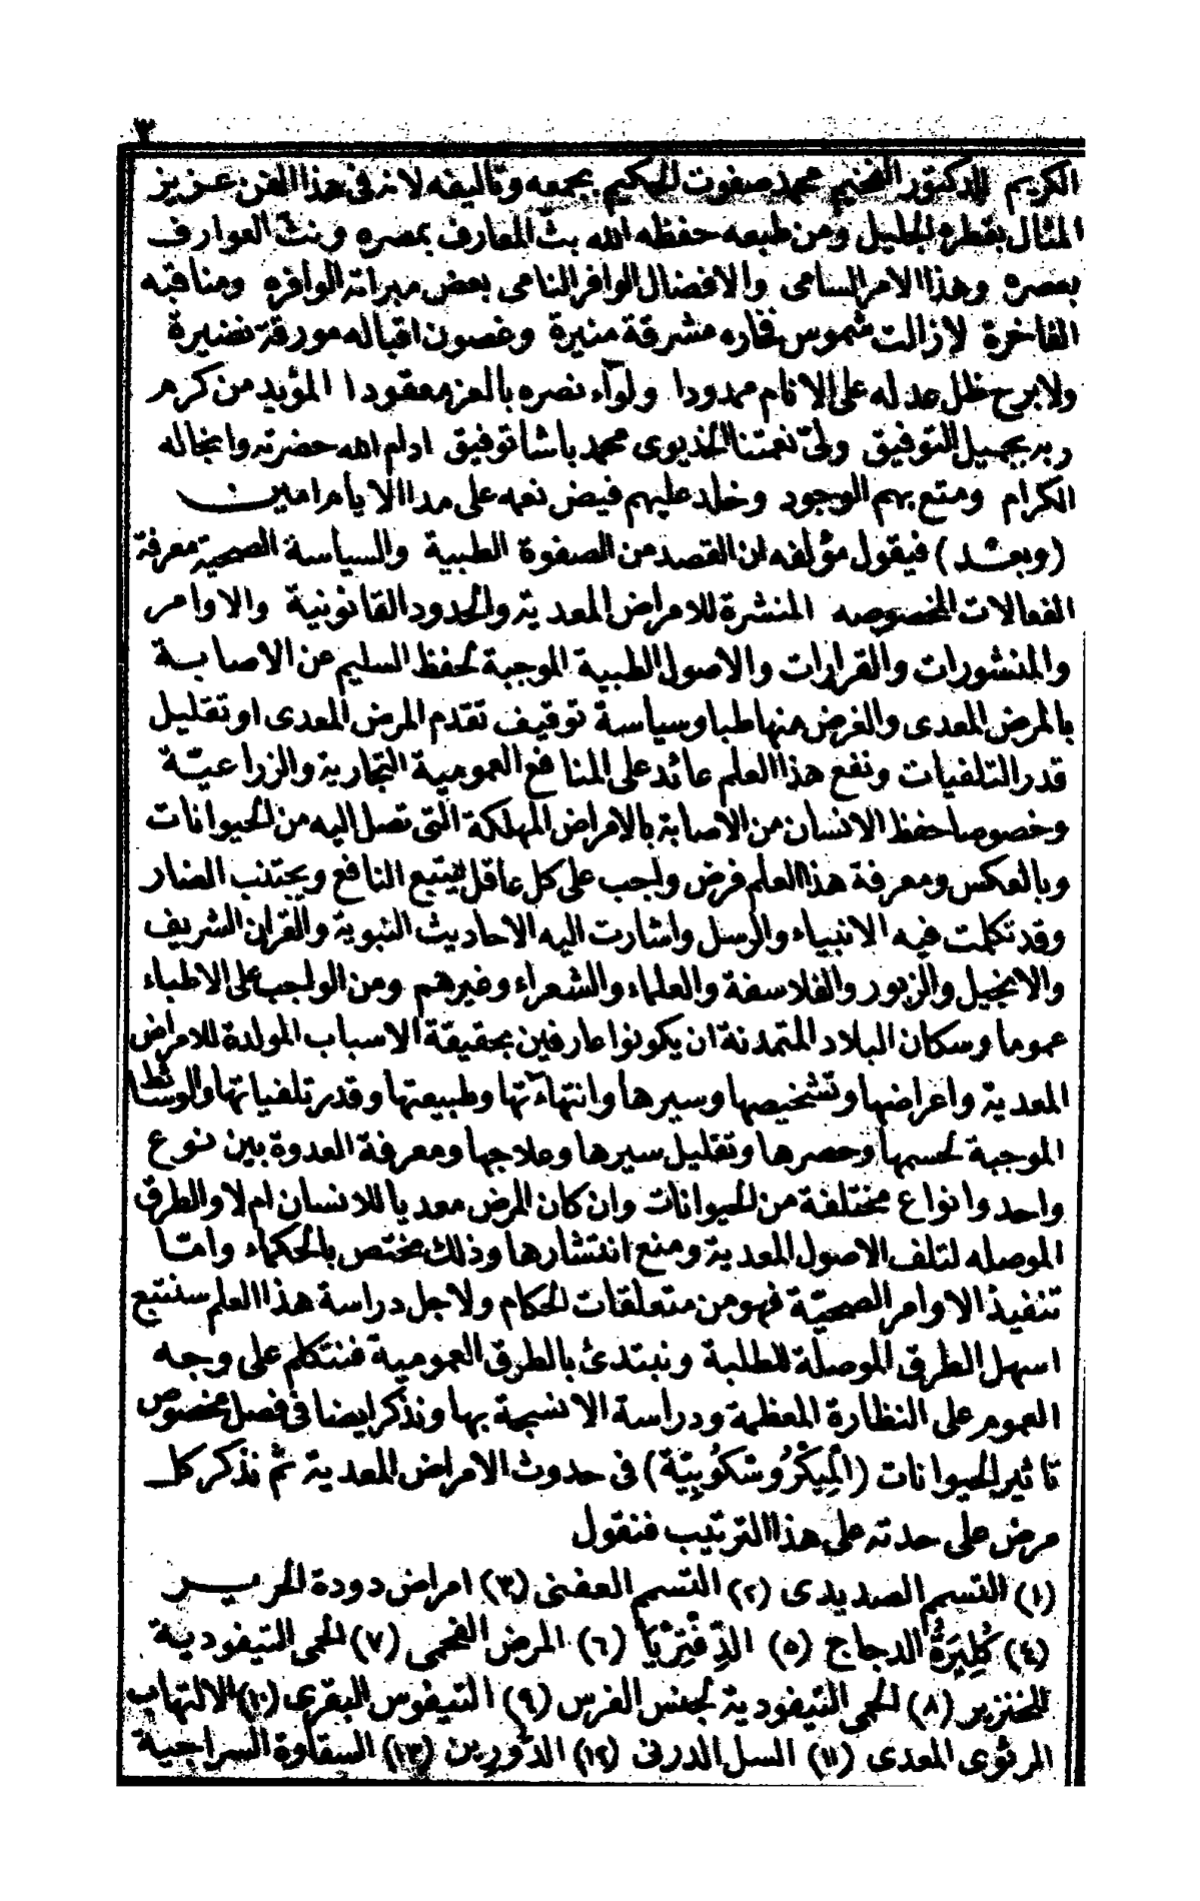 ٣
الكريم للدكتور الفخيم محمد صفوت الحكيم بجمعه وتأليفه لانه فى هذا الفن عزيز
المثال بقطره الجليل ومن طبعه حفظه الله بث المعارف بمصره وبث العوارف
بعصره وهذا الامر السامى والافضال الوافر النامى بعض مبراته الوافره ومناقبه
الفاخرة لازالت شموس فخاره مشرقة منيرة وغصون اقباله مورقة نضيرة
ولابرح ظل عدله على الانام ممدودا ولوآء نصره بالعز معقودا المؤيد من كرم
ربه بجميل التوفيق ولىّ نعمتنا الخذيوى محمد باشا توفيق ادام الله حضرته وانجاله
الكرام ومتع بهم الوجود وخلد عليهم فيض نعمه على مدا الايام امين
(وبعـد) فيقول مؤلفه ان القصد من الصفوة الطبية والسياسة الصحية معرفة
الفعالات المخصوصه المنشرة للامراض المعدية والحدود القانونية والاوامر
والمنشورات والقرارات والاصول الطبية الموجبة لحفظ السليم عن الاصابة
بالمرض المعدى والغرض منها طبا وسياسة توقيف تقدم المرض المعدى او تقليل
قدر التلفيات ونفع هذا العلم عائد على المنافع العمومية التجارية والزراعيّة
وخصوصا حفظ الانسان من الاصابة بالامراض المهلكة التى تصل اليه من الحيوانات
وبالعكس ومعرفة هذا العلم فرض واجب على كل عاقل ليتبع النافع ويجتنب الضار
وقد تكلمت فيه الانبياء والرسل واشارت اليه الاحاديث النبوية والقران الشريف
والانجيل والزبور والفلاسفة والعلماء والشعراء وغيرهم ومن الواجب على الاطباء
عموما وسكان البلاد المتمدنة ان يكونوا عارفين بحقيقة الاسباب المولدة للامراض
المعدية واعراضها وتشخيصها وسيرها وانتهاءتها وطبيعتها وقدر تلفياتها والوسائط
الموجبة لحسمها وحصرها وتقليل سيرها وعلاجها ومعرفة العدوة بين نوع
واحد وانواع مختلفة من الحيوانات وان كان المرض معديا للانسان ام لا والطرق
الموصله لتلف الاصول المعدية ومنع انتشارها وذلك مختص بالحكماء وامّا
تنفيذ الاوامر الصحيّة فهو من متعلقات الحكام ولاجل دراسة هذا العلم سنتبع
اسهل الطرق الموصلة للطلبة ونبتدئ بالطرق العمومية فنتكلم على وجه
العموم على النظارة المعظمة ودراسة الانسجة بها ونذكر ايضا فى فصل مخصوص
تاثير الحيوانات (المِيكْرُوسْكُوبِيّة) فى حدوث الامراض المعدية ثم نذكر كل
مرض على حدته على هذا الترتيب فنقول
(١) التسمم الصديدى (٢) التسمم العفنى (٣) امراض دودة الحرير
(٤) كُلِيَرَةُ الدجاج (٥) الدِّفْتِرْيَا (٦) المرض الفحمى (٧) الحمى التيفودية
للخنزير (٨) الحمى التيفودية لجنس الفرس (٩) التيفوس البقرى (١٠) الالتهاب
الرئوى المعدى (١١) السل الدرنى (١٢) الدّورِين (١٣) السقاوة السراجية